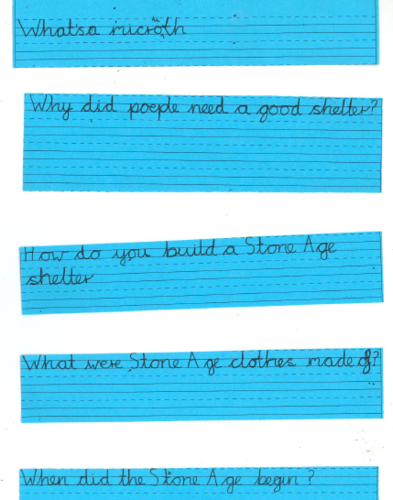 Whatsa microth
Why did poeple need a good shelter?
How do you build a Stone Age
shelter
What were Stone Age clothes made of?
When did the Stone Age begin ?